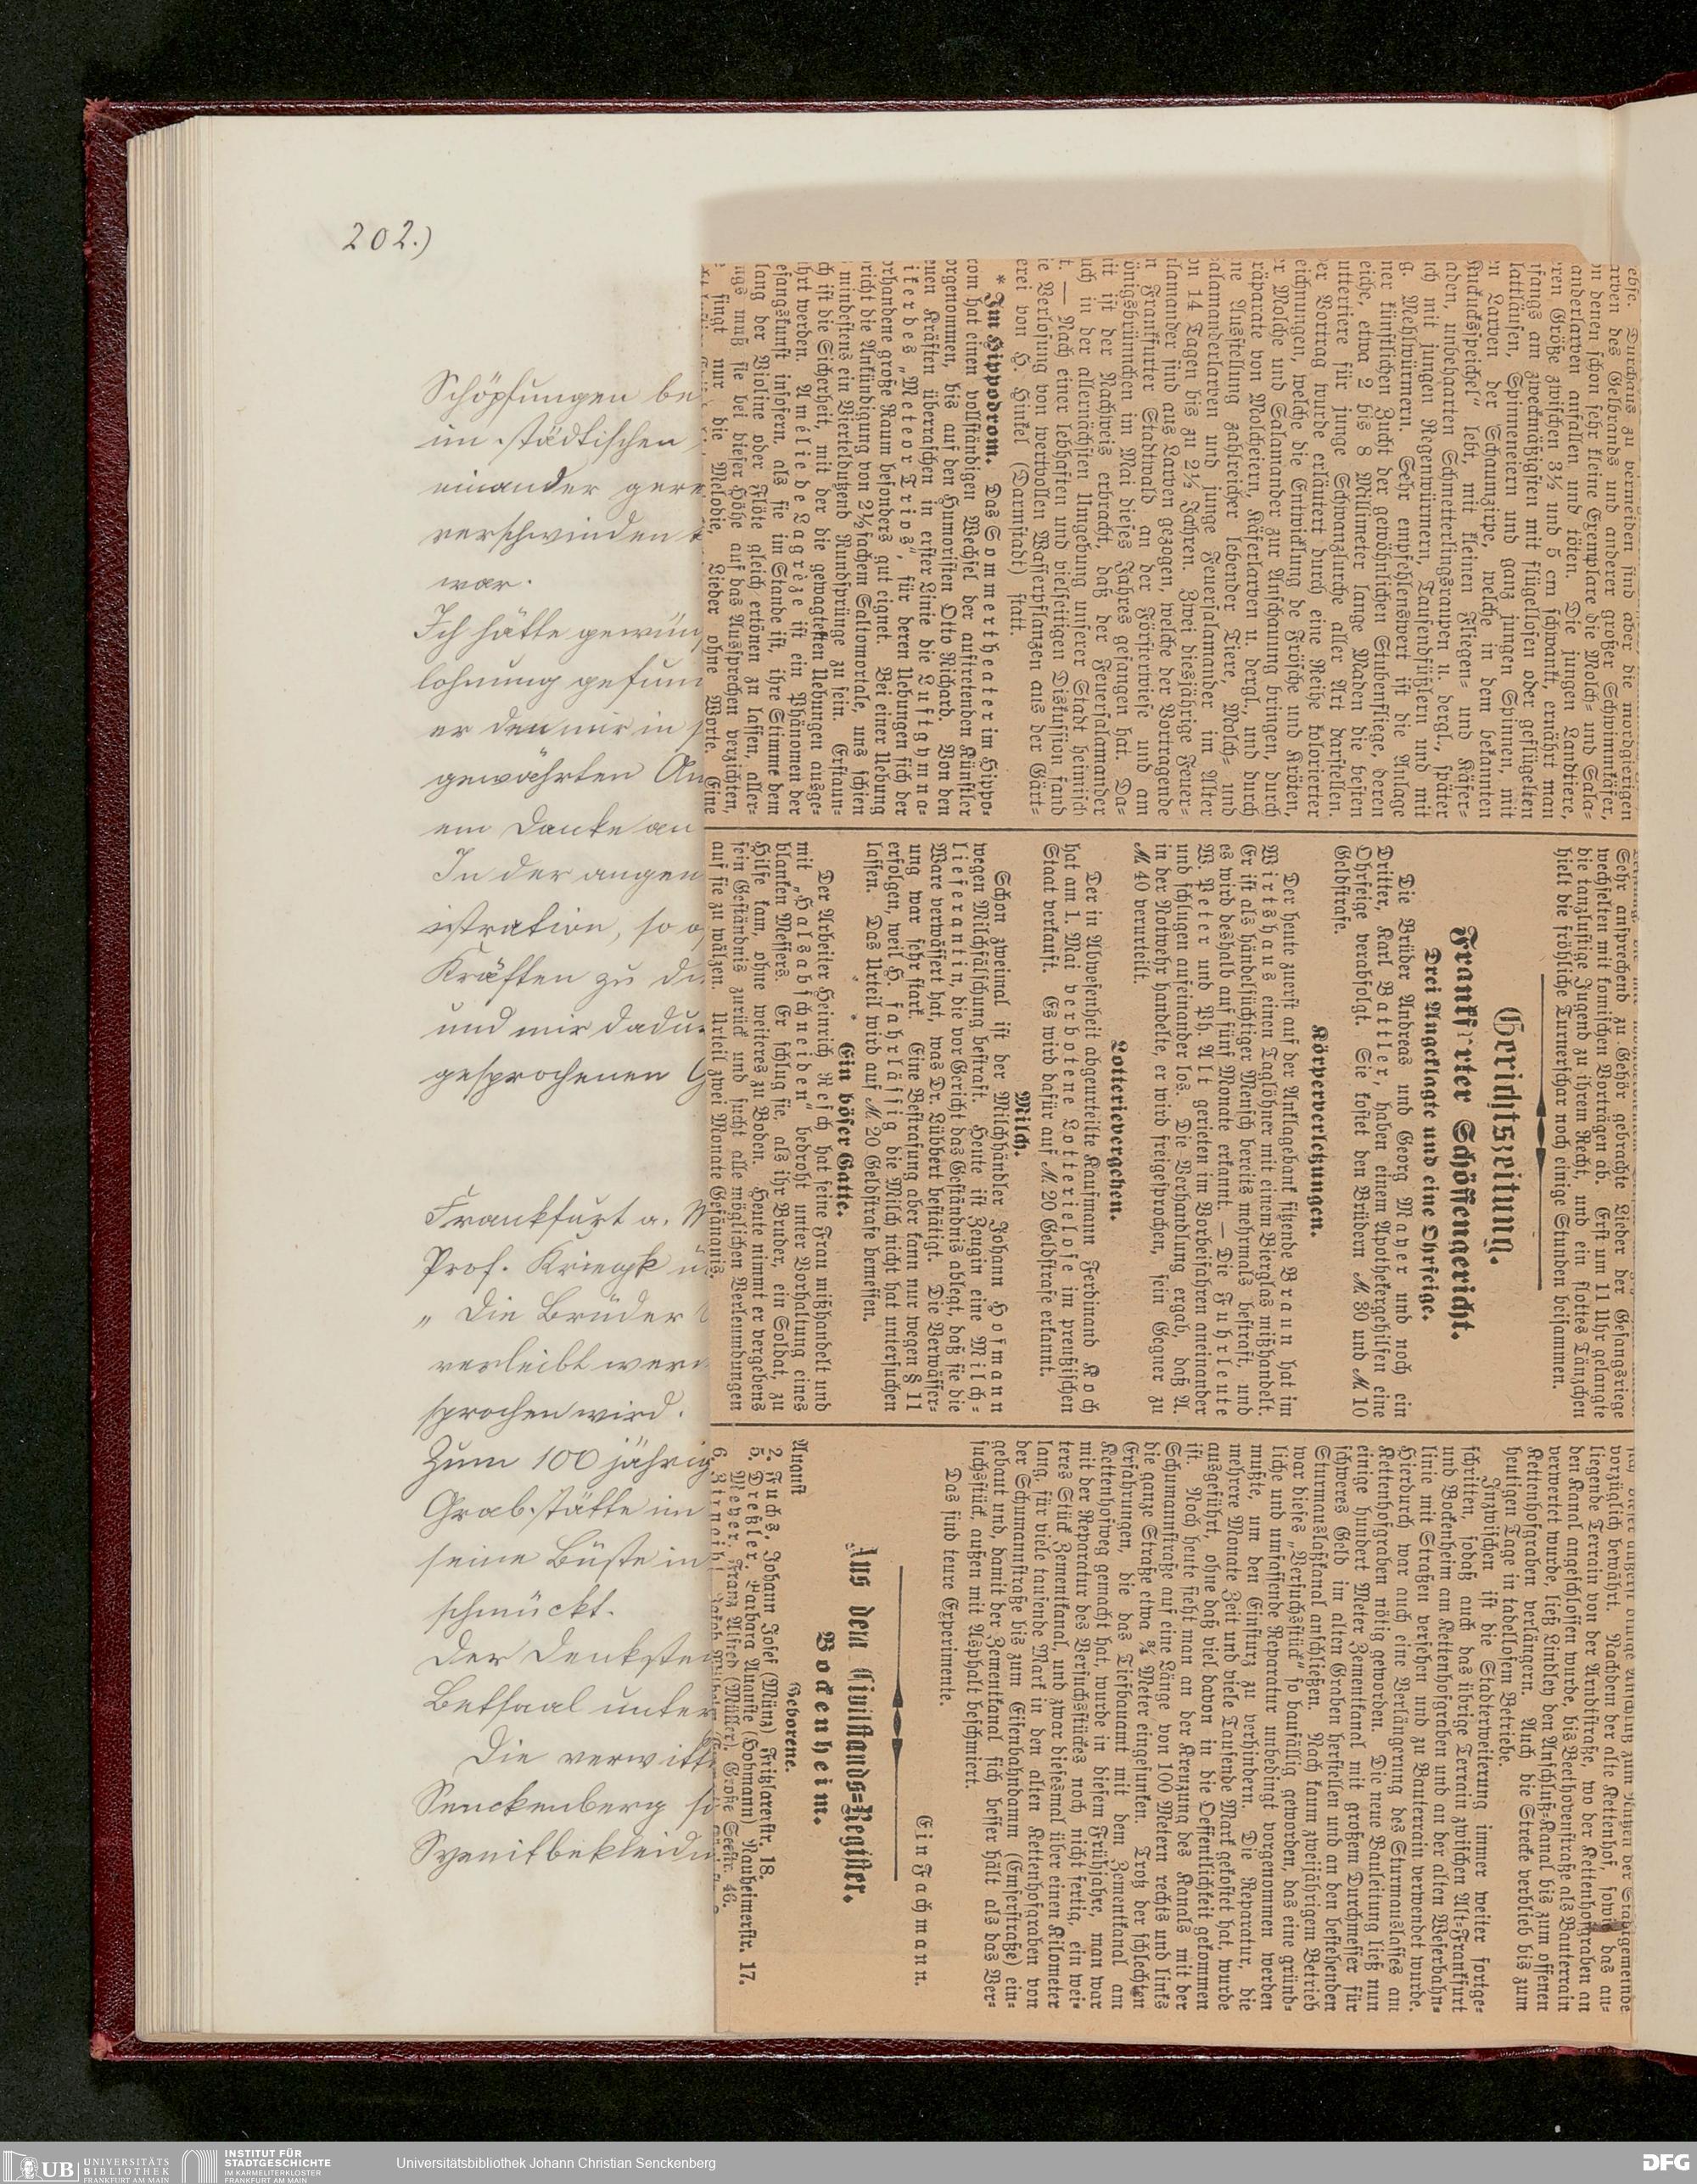 202.)
Schöpfungen be
im städtischen
einander gere
verschwinden
war.
Ich hätte gewün
lohnung gefun
er den mir in
gewährten An
em Danke an
In der angen
istration, so
Kräften zu
und mir dadu
gesprochenen
Frankfurt a. M
Prof. Kriegk
„Die Brüder
verleibt wer
sprochen wird.
Zum 100 jährig
Grabstätte im
seine Büste in
schmückt.
Der Denkste
Betsaal unter
Die verwitt
Senckenberg so
Syenitbekleidu
arven des Gelbrands und anderer großer Schwimmkäfer,
n denen schon sehr kleine Exemplare die Molch- und Sala-
anderlarven anfallen und töten. Die jungen Landtiere,
ren Größe zwischen 3½ und 5 cm schwankt, ernährt man
fangs am zweckmäßigsten mit flügellosen oder geflügelten
lattläusen, Spinneneiern und ganz jungen Spinnen, mit
n Larven der Schaumzirpe, welche in dem bekannten
Kuckucksspeichel" lebt, mit kleinen Fliegen- und Käfer-
aden, unbehaarten Schmetterlingsraupen u. dergl., später
ch mit jungen Regenwürmern, Tausendfüßlern und mit
g. Mehlwürmern. Sehr empfehlenswert ist die Anlage
ner künstlichen Zucht der gewöhnlichen Stubenfliege, deren
eiche, etwa 2 bis 8 Millimeter lange Maden die besten
uttertiere für junge Schwanzlurche aller Art darstellen.
er Vortrag wurde erläutert durch eine Reihe kolorierter
eichnungen, welche die Entwicklung de Frösche und Kröten,
r Molche und Salamander zur Anschauung bringen, durch
räparate von Molcheiern, Käferlarven u. dergl., und durch
ne Ausstellung zahlreicher lebender Tiere, Molch- und
alamanderlarven und junge Feuersalamander im Alter
on 14 Tagen bis zu 2½ Jahren. Zwei diesjährige Feuer-
lamander sind aus Larven gezogen, welche der Vortragende
n Frankfurter Stadtwald an der Försterwiese und am
önigsbrünnchen im Mai dieses Jahres gefangen hat. Da-
it ist der Nachweis erbracht, daß der Feuersalamander
uch in der allernächsten Umgebung unserer Stadt heimisch
t. — Nach einer lebhaften und vielseitigen Diskussion fand
ie Verlosung von wertvollen Wasserpflanzen aus der Gärt-
erei von H. Hinkel (Darmstadt) statt.
* Im Hippodrom. Das Sommertheater im Hippo-
rom hat einen vollständigen Wechsel der auftretenden Künstler
orgenommen, bis auf den Humoristen Otto Richard. Von den
enen Kräften überraschen in erster Linie die Luftgymna-
iker des „Meteor Trios", für deren Uebungen sich der
orhandene große Raum besonders gut eignet. Bei einer Uebung
richt die Ankündigung von 2½fachem Saltomortale, uns schien
mindestens ein Vierteldutzend Rundsprünge zu sein. Erstaun-
ch ist die Sicherheit, mit der die gewagtesten Uebungen ausge-
hrt werden. Amélie de Lagrèze ist ein Phänomen der
esangskunst insofern, als sie im Stande ist, ihre Stimme dem
lang der Violine oder Flöte gleich ertönen zu lassen, aller-
ngs muß sie bei dieser Höhe auf das Aussprechen verzichten,
singt nur die Melodie, Lieder ohne Worte. Eine
Sehr ansprechend zu Gehör gebrachte Lieder der Gesangsriege
wechselten mit komischen Vorträgen ab. Erst um 11 Uhr gelangte
die tanzlustige Jugend zu ihrem Recht, und ein flottes Tänzchen
hielt die fröhliche Turnerschar noch einige Stunden beisammen.
Gerichtszeitung.
Frankfurter Schöffengericht.
Drei Angeklagte und eine Ohrfeige.
Die Brüder Andreas und Georg Mayer und noch ein
Dritter, Karl Battler, haben einem Apothekergehilfen eine
Ohrfeige verabfolgt. Sie kostet den Brüdern M. 30 und M. 10
Geldstrafe.
Körperverletzungen.
Der heute zuerst auf der Anklagebank sitzende Braun hat im
Wirtshaus einen Taglöhner mit einem Bierglas mißhandelt.
Er ist als händelsüchtiger Mensch bereits mehrmals bestraft, und
es wird deshalb auf fünf Monate erkannt. — Die Fuhrleute
W. Peter und Ph. Alt gerieten im Vorbeifahren aneinander
und schlugen aufeinander los. Die Verhandlung ergab, daß A.
in der Notwehr handelte, er wird freigesprochen, sein Gegner zu
M. 40 verurteilt.
Lotterievergehen.
Der in Abwesenheit abgeurteilte Kaufmann Ferdinand Koch
hat am 1. Mai verbotene Lotterielose im preußischen
Staat verkauft. Es wird dafür auf M. 20 Geldstrafe erkannt.
Milch.
Schon zweimal ist der Milchhändler Johann Hofmann
wegen Milchfälschung bestraft. Heute ist Zeugin eine Milch-
lieferantin, die vor Gericht das Geständnis ablegt, daß sie die
Ware verwässert hat, was Dr. Lübbert bestätigt. Die Verwässer-
ung war sehr stark. Eine Bestrafung aber kann nur wegen § 11
erfolgen, weil H. fahrlässig die Milch nicht hat untersuchen
lassen. Das Urteil wird auf M. 20 Geldstrafe bemessen.
Ein böser Gatte.
Der Arbeiter Heinrich Resch hat seine Frau mißhandelt und
mit „Halsabschneiden" bedroht unter Vorhaltung eines
blanken Messers. Er schlug sie, als ihr Bruder, ein Soldat, zu
Hilfe kam, ohne weiteres zu Boden. Heute nimmt er vergebens
sein Geständnis zurück und sucht alle möglichen Verleumdungen
auf sie zu wälzen. Urteil zwei Monate Gefängnis.
vorzüglich bewährt. Nachdem der alte Kettenhof, sowie das an-
liegende Terrain von der Arndtstraße, wo der Kettenhofgraben an
den Kanal angeschlossen wurde, bis Beethovenstraße als Bauterrain
verwertet wurde, ließ Lindley den Anschluß-Kanal bis zum offenen
Kettenhofgraben verlängern. Auch die Strecke verblieb bis zum
heutigen Tage in tadellosem Betriebe.
Inzwischen ist die Stadterweiterung immer weiter fortge-
schritten, sodaß auch das übrige Terrain zwischen Alt-Frankfurt
und Bockenheim am Kettenhofgraben und an der alten Weserbahn-
linie mit Straßen versehen und zu Bauterrain verwendet wurde.
Hierdurch war auch eine Verlängerung des Sturmauslasses am
Kettenhofgraben nötig geworden. Die neue Bauleitung ließ nun
einige hundert Meter Zementkanal mit großem Durchmesser für
schweres Geld im alten Graben herstellen und an den bestehenden
Sturmauslaßkanal anschließen. Nach kaum zweijährigem Betrieb
war dieses „Versuchsstück" so baufällig geworden, das eine gründ-
liche und umfassende Reparatur unbedingt vorgenommen werden
mußte, um den Einsturz zu verhindern. Die Reparatur, die
mehrere Monate Zeit und viele Tausende Mark gekostet hat, wurde
ausgeführt, ohne daß viel davon in die Oeffentlichkeit gekommen
ist. Noch heute sieht man an der Kreuzung des Kanals mit der
Schumannstraße auf eine Länge von 100 Metern rechts und links
die ganze Straße etwa ¾ Meter eingesunken. Trotz der schlechten
Erfahrungen, die das Tiefbauamt mit dem Zementkanal am
Kettenhofweg gemacht hat, wurde in diesem Frühjahre, man war
mit der Reparatur des Versuchsstückes noch nicht fertig, ein wei-
teres Stück Zementkanal, und zwar diesesmal über einen Kilometer
lang, für viele tausende Mark in den alten Kettenhofgraben von
der Schumannstraße bis zum Eisenbahndamm (Emserstraße) ein-
gebaut und, damit der Zementkanal sich besser hält als das Ver-
suchsstück, außen mit Asphalt beschmiert.
Das sind teure Experimente.
Ein Fachmann.
Aus dem Civilstands-Register.
Bockenheim.
Geborene.
August
2. Fuchs, Johann Josef (Münz) Fritzlarerstr. 18.
5. Dreßler, Barbara Auguste (Hobmann) Nauheimerstr. 17.
Meyer, Franz Alfred (Müller), Große Seestr. 46.
UB UNIVERSITÄTS
BIBLIOTHEK
FRANKFURT AM MAIN
INSTITUT FÜR
STADTGESCHICHTE
IM KARMELITERKLOSTER
FRANKFURT AM MAIN
Universitätsbibliothek Johann Christian Senckenberg
DFG